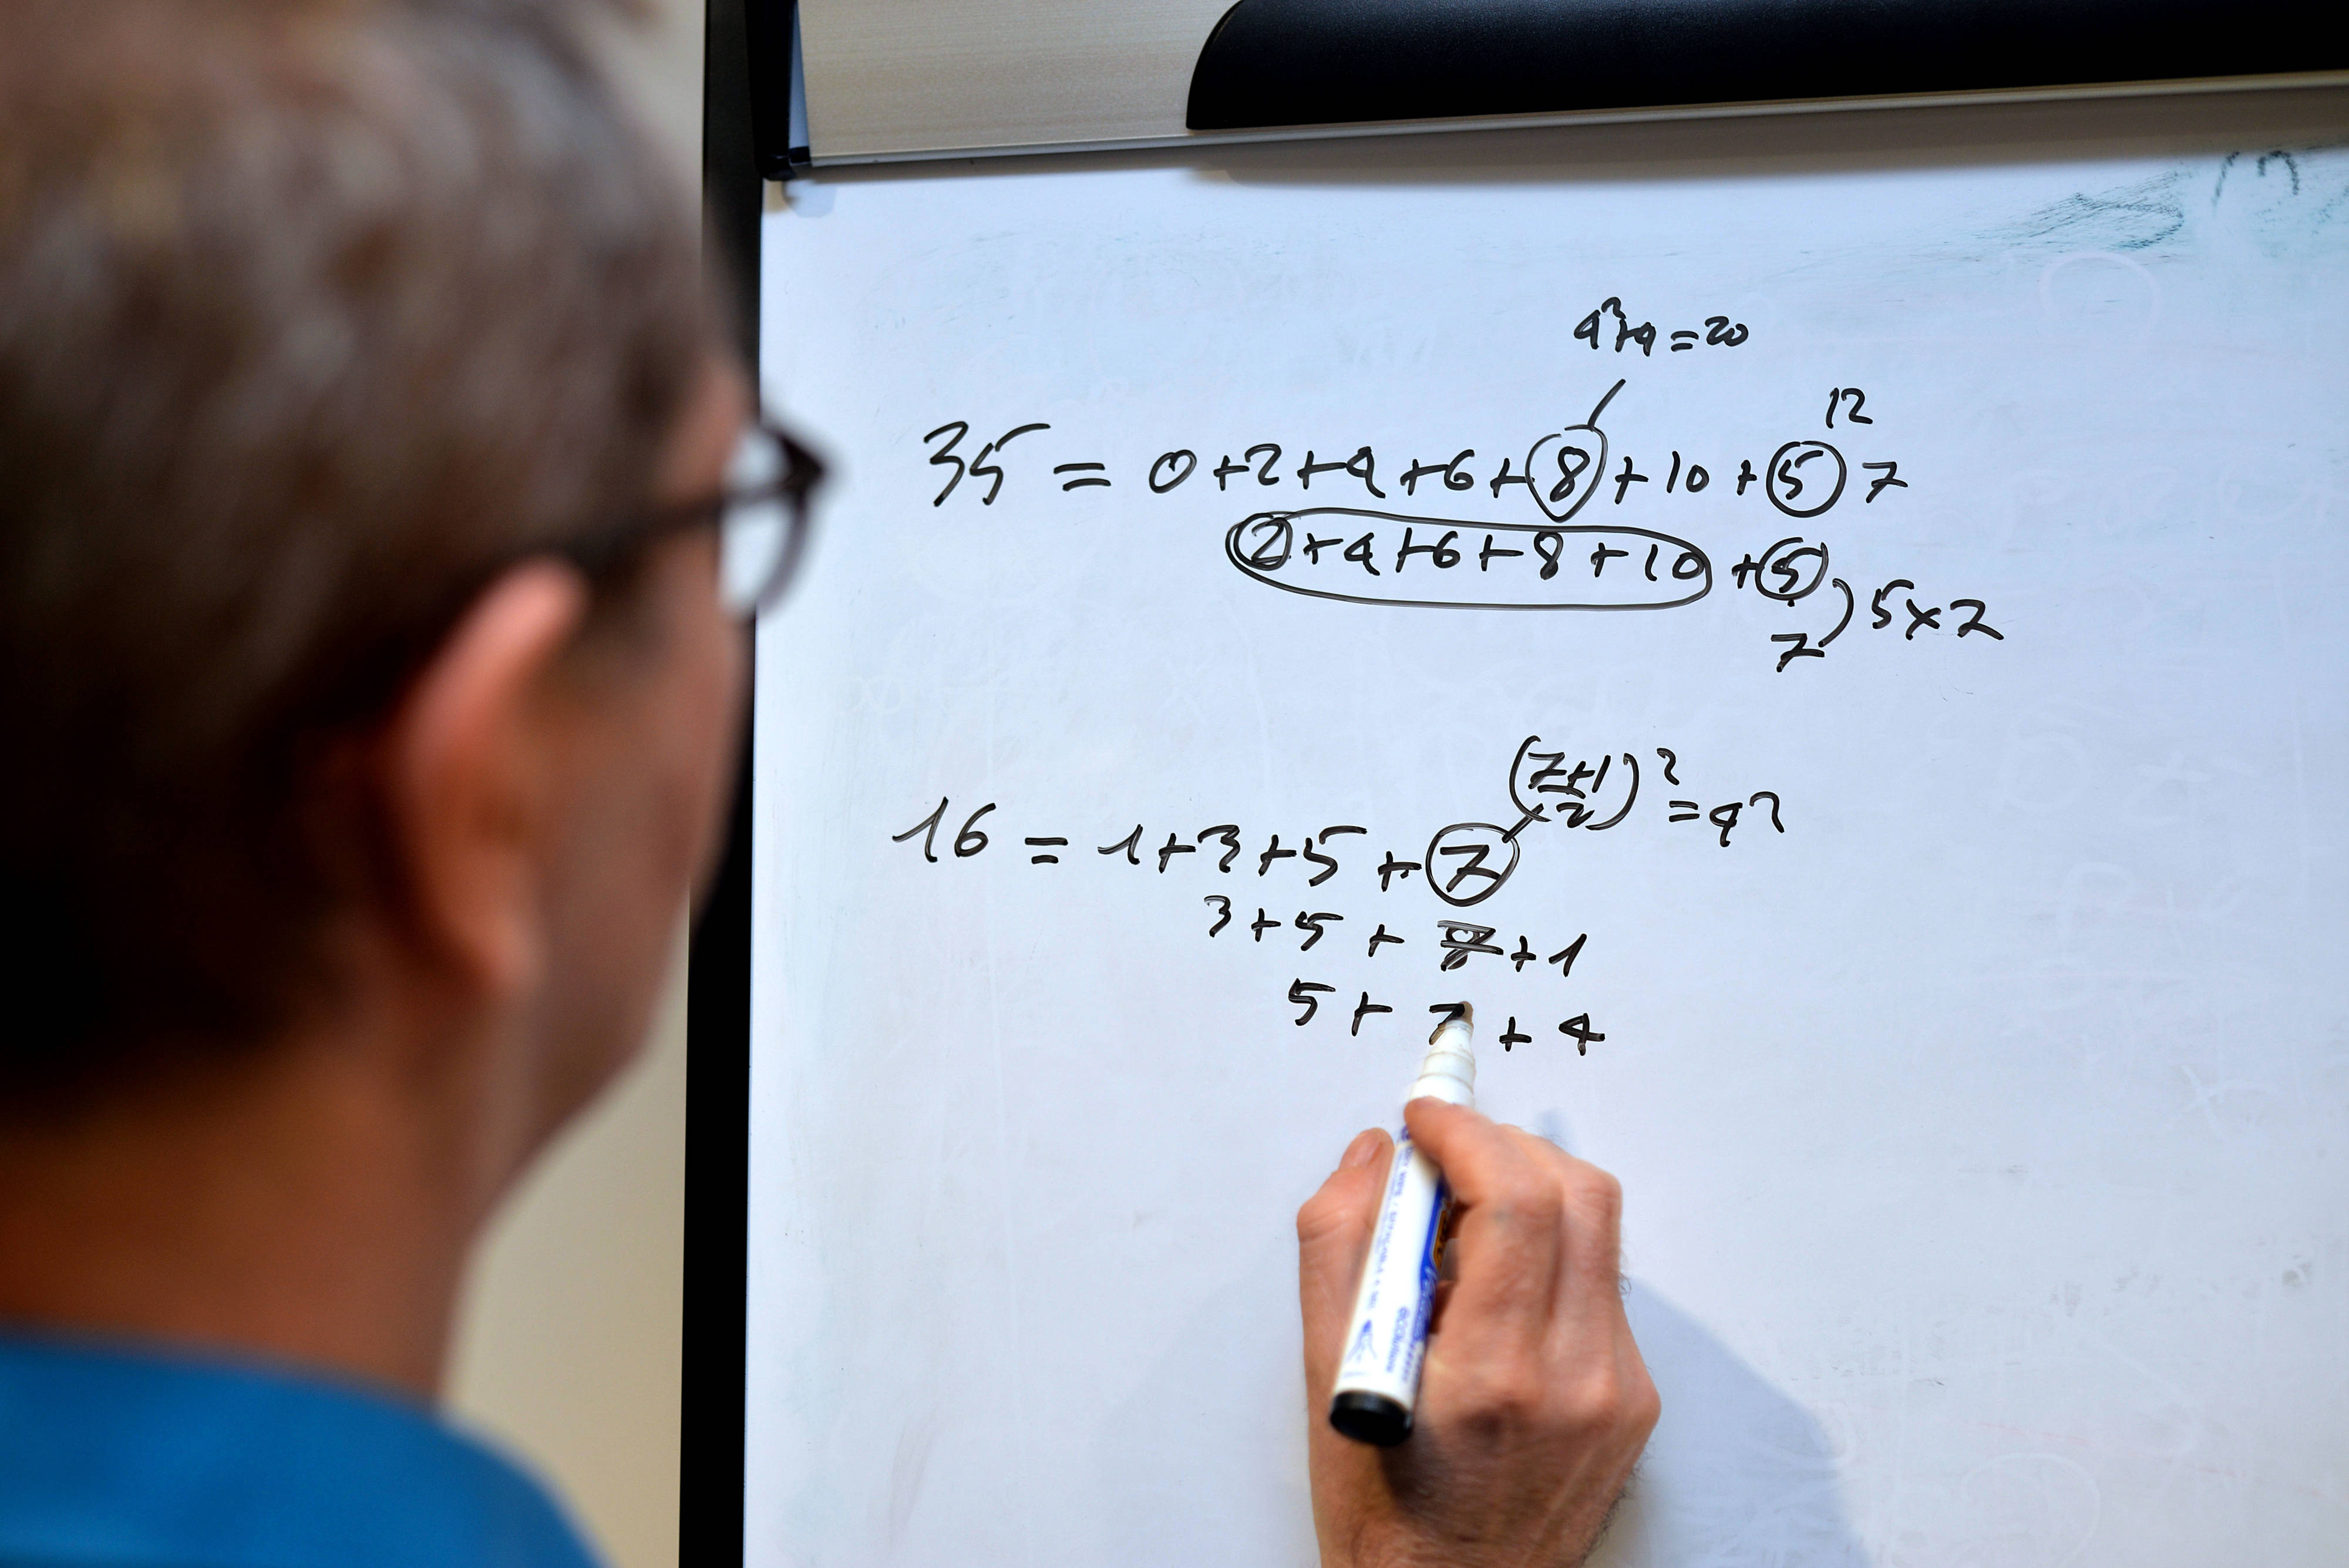 4²+4=20
12
35 = 0+2+4+6+8+10+5 7
2+4+6+8+10+5
7 5x7
(7+1/2)² = 4²
16 = 1+3+5+7
3+5+7+1
5+7+4